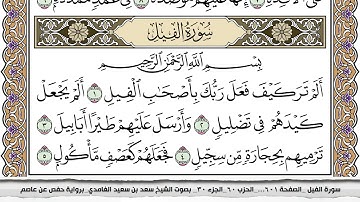 سُورَةُ الفِيلِ
بِسْمِ اللَّهِ الرَّحْمَٰنِ الرَّحِيمِ
أَلَمْ تَرَ كَيْفَ فَعَلَ رَبُّكَ بِأَصْحَٰبِ ٱلْفِيلِ ١ أَلَمْ يَجْعَلْ
كَيْدَهُمْ فِى تَضْلِيلٍ ٢ وَأَرْسَلَ عَلَيْهِمْ طَيْرًا أَبَابِيلَ ٣
تَرْمِيهِم بِحِجَارَةٍ مِّن سِجِّيلٍ ٤ فَجَعَلَهُمْ كَعَصْفٍ مَّأْكُولٍۭ ٥
سورة الفيل _الصفحة ٦٠١_... الحزب ٦٠_الجزء ٣٠_ بصوت الشيخ سعد بن سعيد الغامدي_ برواية حفص عن عاصم